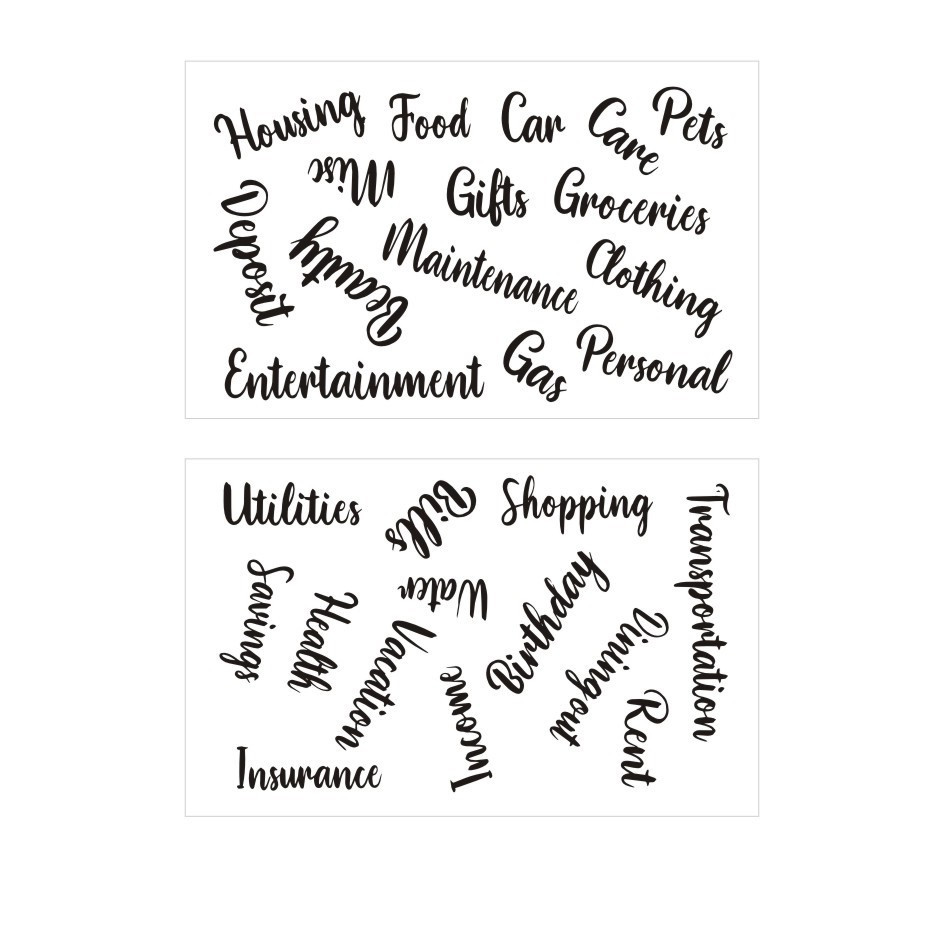 Housing
Food
Car
Care
Pets
Misc
Gifts
Groceries
Deposit
Beauty
Maintenance
Clothing
Entertainment
Gas
Personal
Utilities
Bills
Shopping
Transportation
Savings
Health
Water
Vacation
Birthday
Diningout
Income
Rent
Insurance